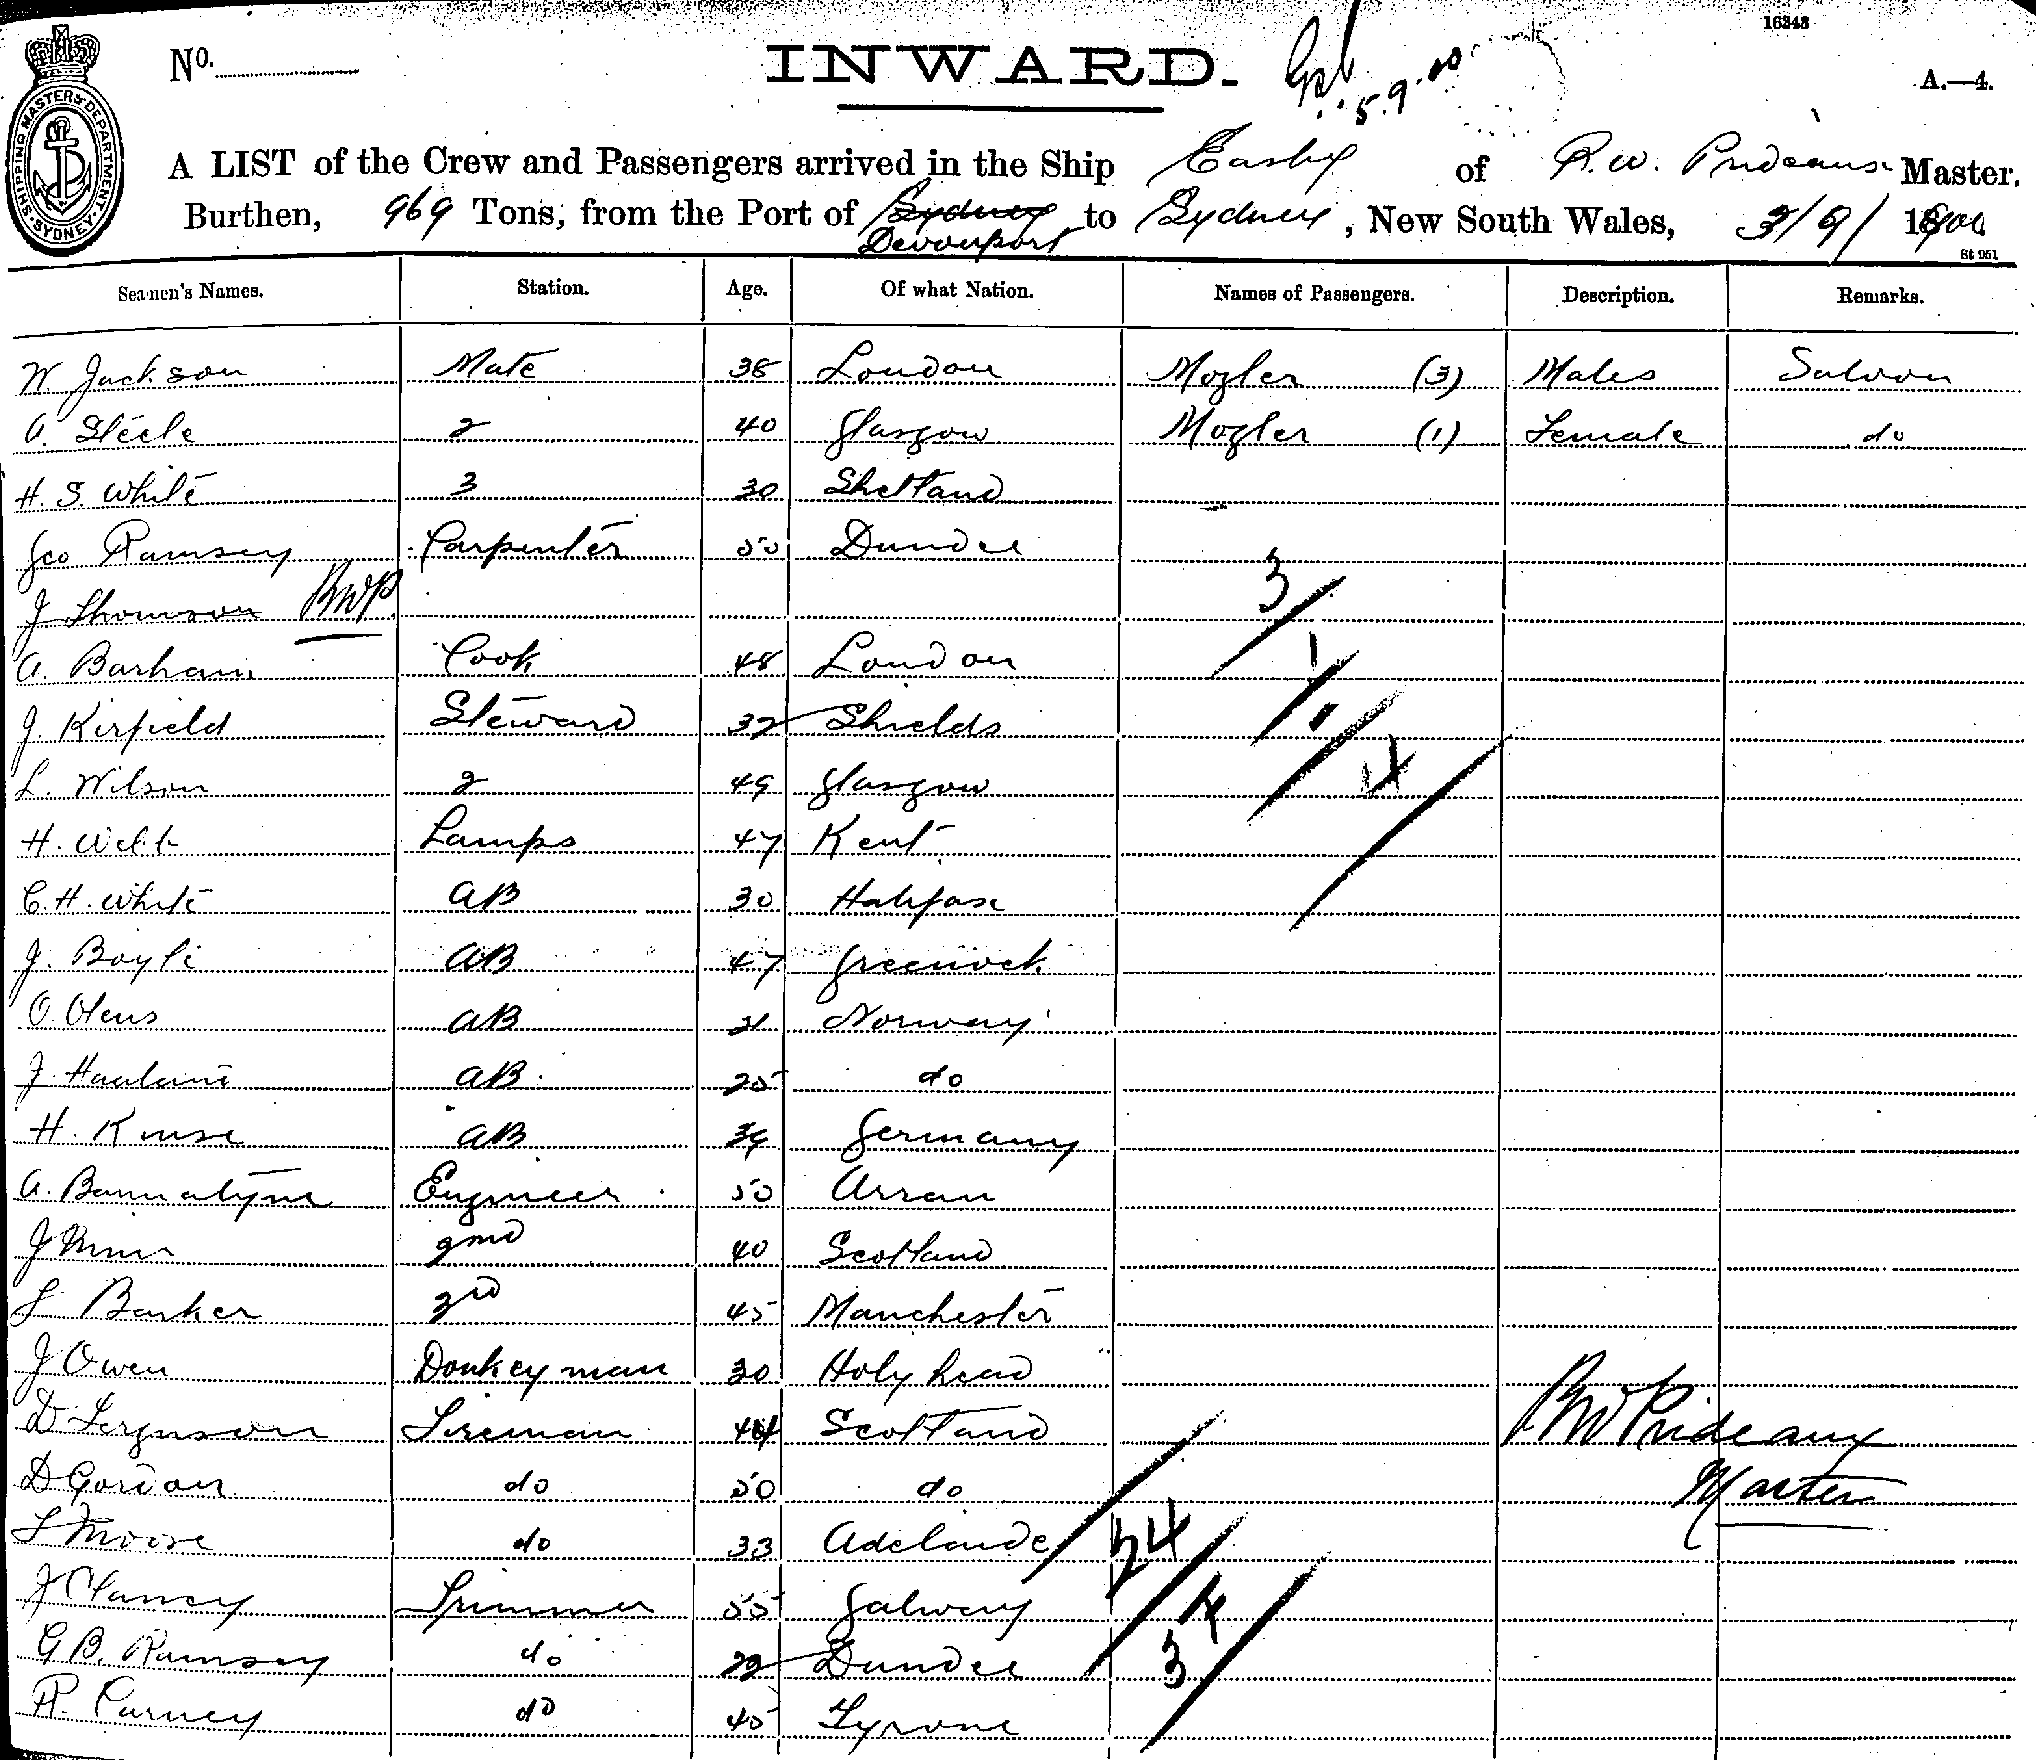 16243
No.
INWARD.
5.9.00
A.—4.
SHIPPING MASTER'S DEPARTMENT. SYDNEY.
A LIST of the Crew and Passengers arrived in the Ship Easby of R. W. Prideaux Master,
Burthen, 969 Tons, from the Port of Sydney Devonport to Sydney, New South Wales, 3/9/ 1900
St 951
Seamen's Names. Station. Age. Of what Nation. Names of Passengers. Description. Remarks.
W. Jackson Mate 38 London Mogler (3) Males Saloon
A. Steele 2 40 Glasgow Mogler (1) Female do
H. S. White 3 30 Shetland
Geo Ramsey Carpenter 50 Dundee
J Thomson RWP.
A. Barham Cook 48 London
J. Kirfield Steward 32 Shields
L. Wilson 2 49 Glasgow
H. Webb Lamps 47 Kent
C. H. White AB 30 Halifax
J. Boyle AB 47 Greenock
O. Olens AB 21 Norway
J. AB 25 do
H. Kruse AB 34 Germany
A. Bannatyne Engineer 50 Arran
J 2nd 40 Scotland
L Barker 3rd 45 Manchester
J Owen Donkeyman 30 Holyhead
D Ferguson Fireman 44 Scotland
D Gordon do 50 do
L Moore do 33 Adelaide
J Clancy Trimmer 55 Galway
G B. Ramsey do 22 Dundee
R. Carney do 45 Tyrone
3/
1/
"/
4/
24/
4/
3
RW Prideaux
Master